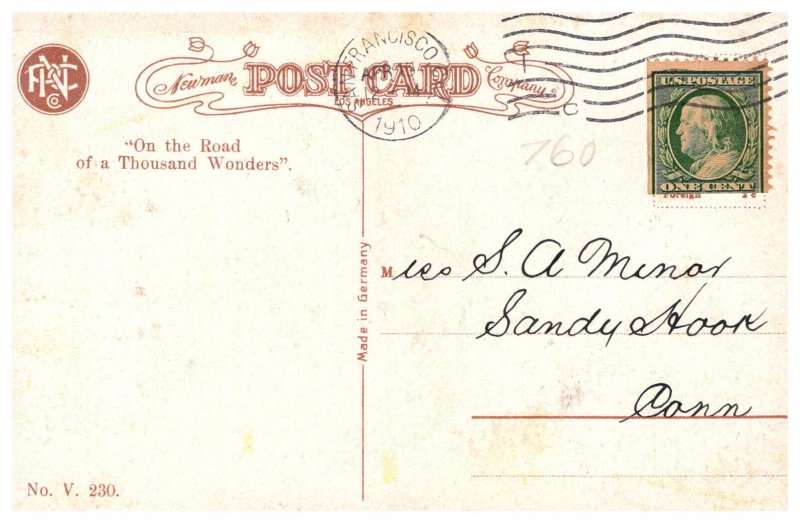 Newman POST CARD Company
LOS ANGELES
SAN FRANCISCO
APR
1910
U.S. POSTAGE
ONE CENT
Foreign 2c
"On the Road
of a Thousand Wonders".
760
Made in Germany
Miss S. A Minor
Sandy Hook
Conn
No. V. 230.